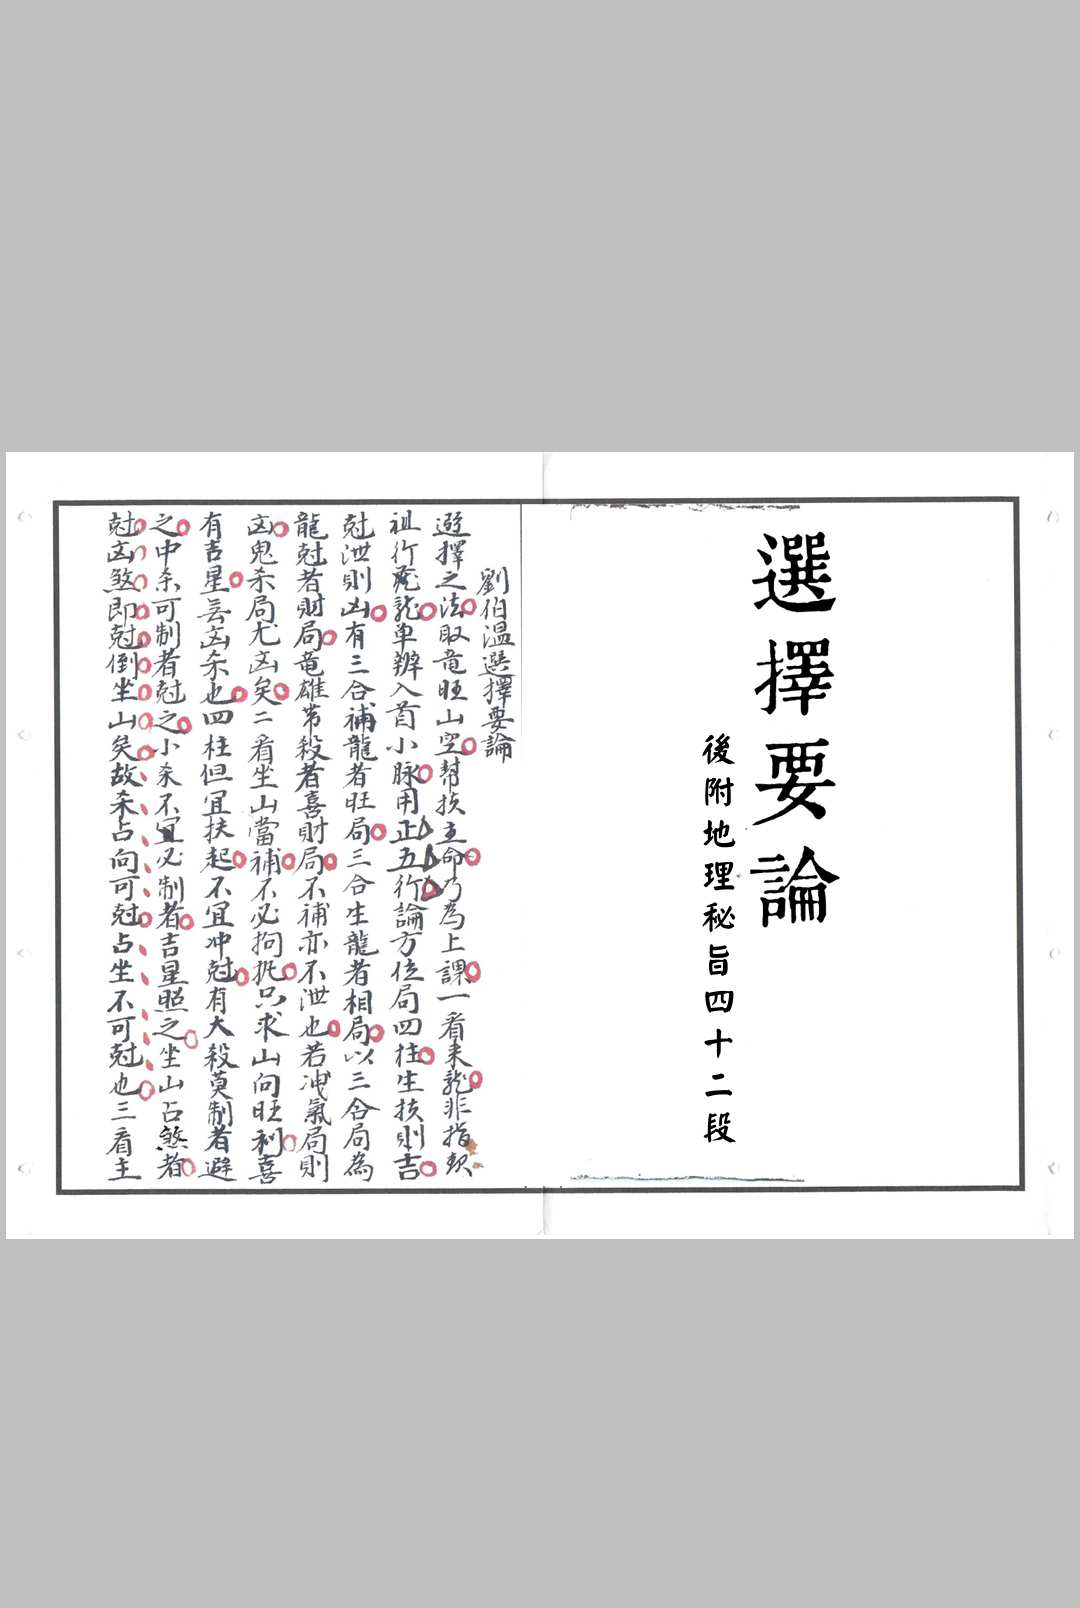 選擇要論
後附地理秘旨四十二段
劉伯温選擇要論
選擇之法取竜旺山空幫扶主命乃為上課一看来龍非指
祖行龍單辨入首小脉用正五行論方位局四柱生扶則吉
尅泄則凶有三合補龍者旺局三合生龍者相局以三合局為
龍尅者財局竜雄带殺者喜財局不補亦不泄也若洩氣局則
凶鬼杀局尤凶矣二看坐山當補不必拘扺只求山向旺利喜
有吉星无凶杀也四柱但宜扶起不宜冲尅有大殺莫制者避
之中杀可制者尅之小杀不宜必制者吉星照之坐山占煞者
尅凶煞即尅倒坐山矣故杀占向可尅占坐不可尅也三看主